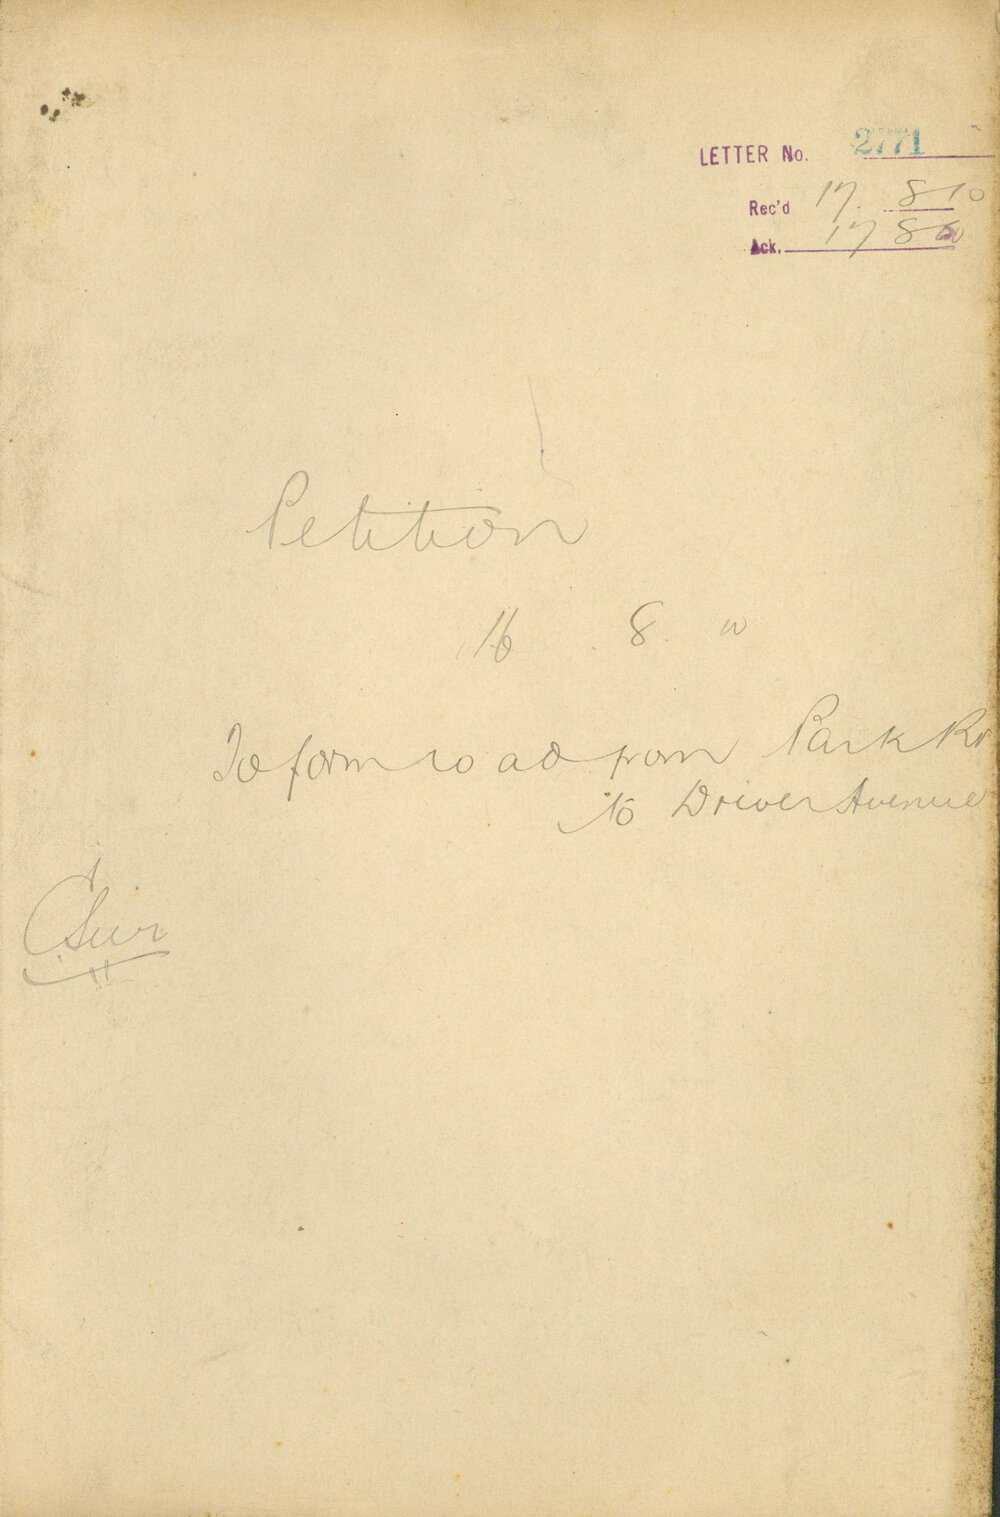 LETTER No. 2771
Rec'd 17. 8 10
Ack. 17 8 10
Petition
16 8 10
To form road from Park Rd
to Driver Avenue